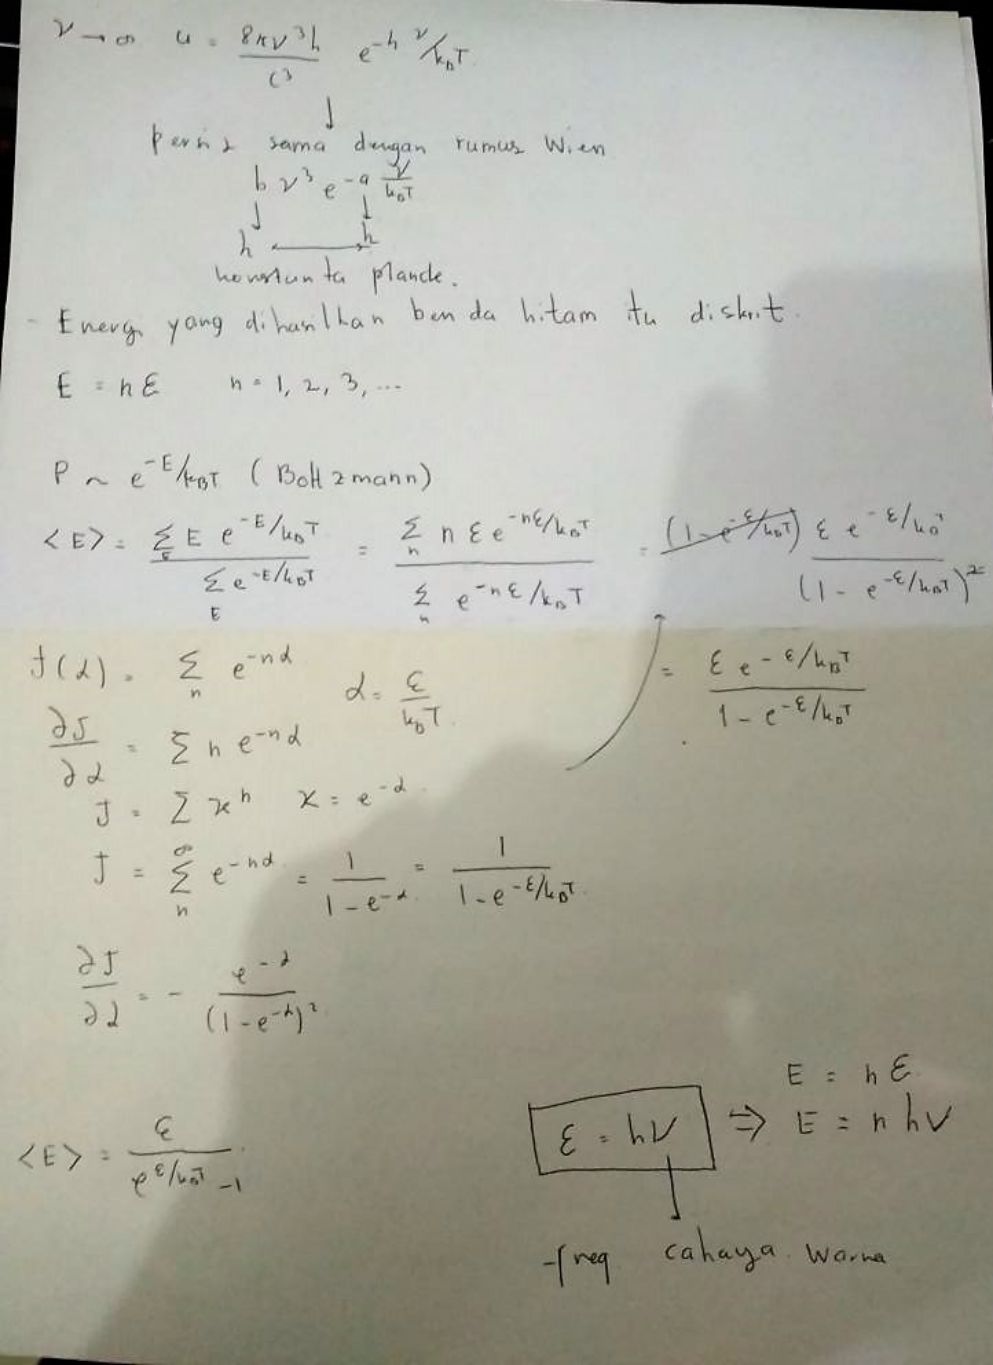 ν → ∞ u = 8πν³h / c³ e^-h ν/k_BT
persis sama dengan rumus Wien
b ν³ e^-a ν/k_BT
h ↔ h
konstanta planck.
- Energi yang dihasilkan benda hitam itu diskrit.
E = nε n = 1, 2, 3, ...
P ~ e^-E/k_BT (Boltzmann)
<E> = Σ_E E e^-E/k_BT / Σ_E e^-E/k_BT = Σ_n n ε e^-nε/k_BT / Σ_n e^-nε/k_BT = (1 - e^-ε/k_BT) ε e^-ε/k_BT / (1 - e^-ε/k_BT)²
= ε e^-ε/k_BT / 1 - e^-ε/k_BT
J(α) = Σ_n e^-nα α = ε / k_BT
∂J/∂α = Σ n e^-nα
J = Σ x^n x = e^-α
J = Σ_n^∞ e^-nα = 1 / 1 - e^-α = 1 / 1 - e^-ε/k_BT
∂J/∂α = - e^-α / (1 - e^-α)²
<E> = ε / e^ε/k_BT - 1
E = nε
ε = hν ⇒ E = nhν
freq cahaya. warna